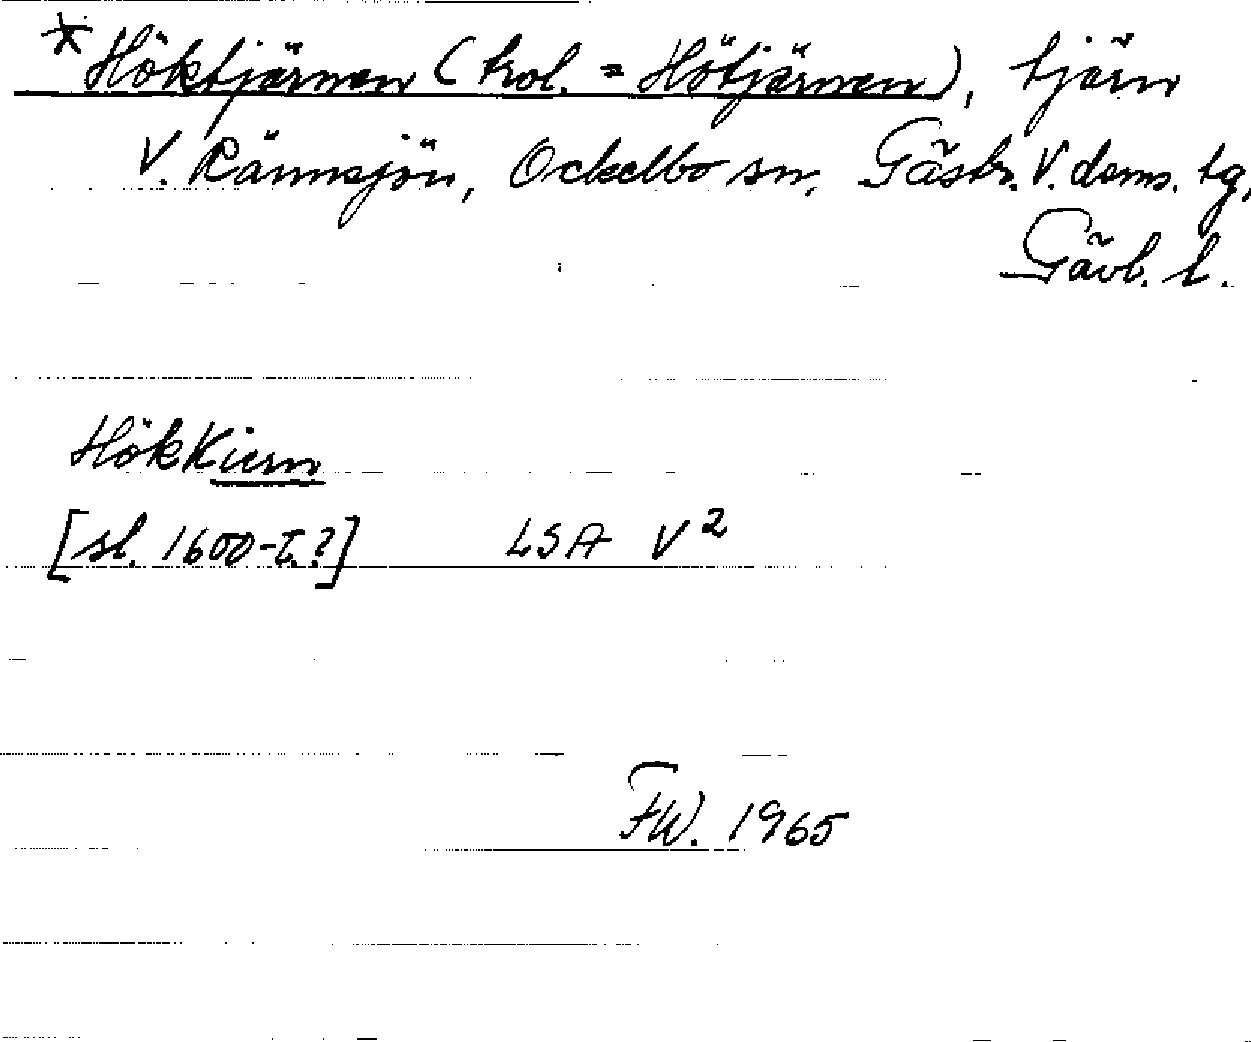 *Höktjärnen (trol. = Hötjärnen), tjärn
V. Rännsjön, Ockelbo sn, Gästr. V. doms. tg,
Gävl. l.
HökKiern
[sl. 1600-t.?] LSA V²
FW. 1965